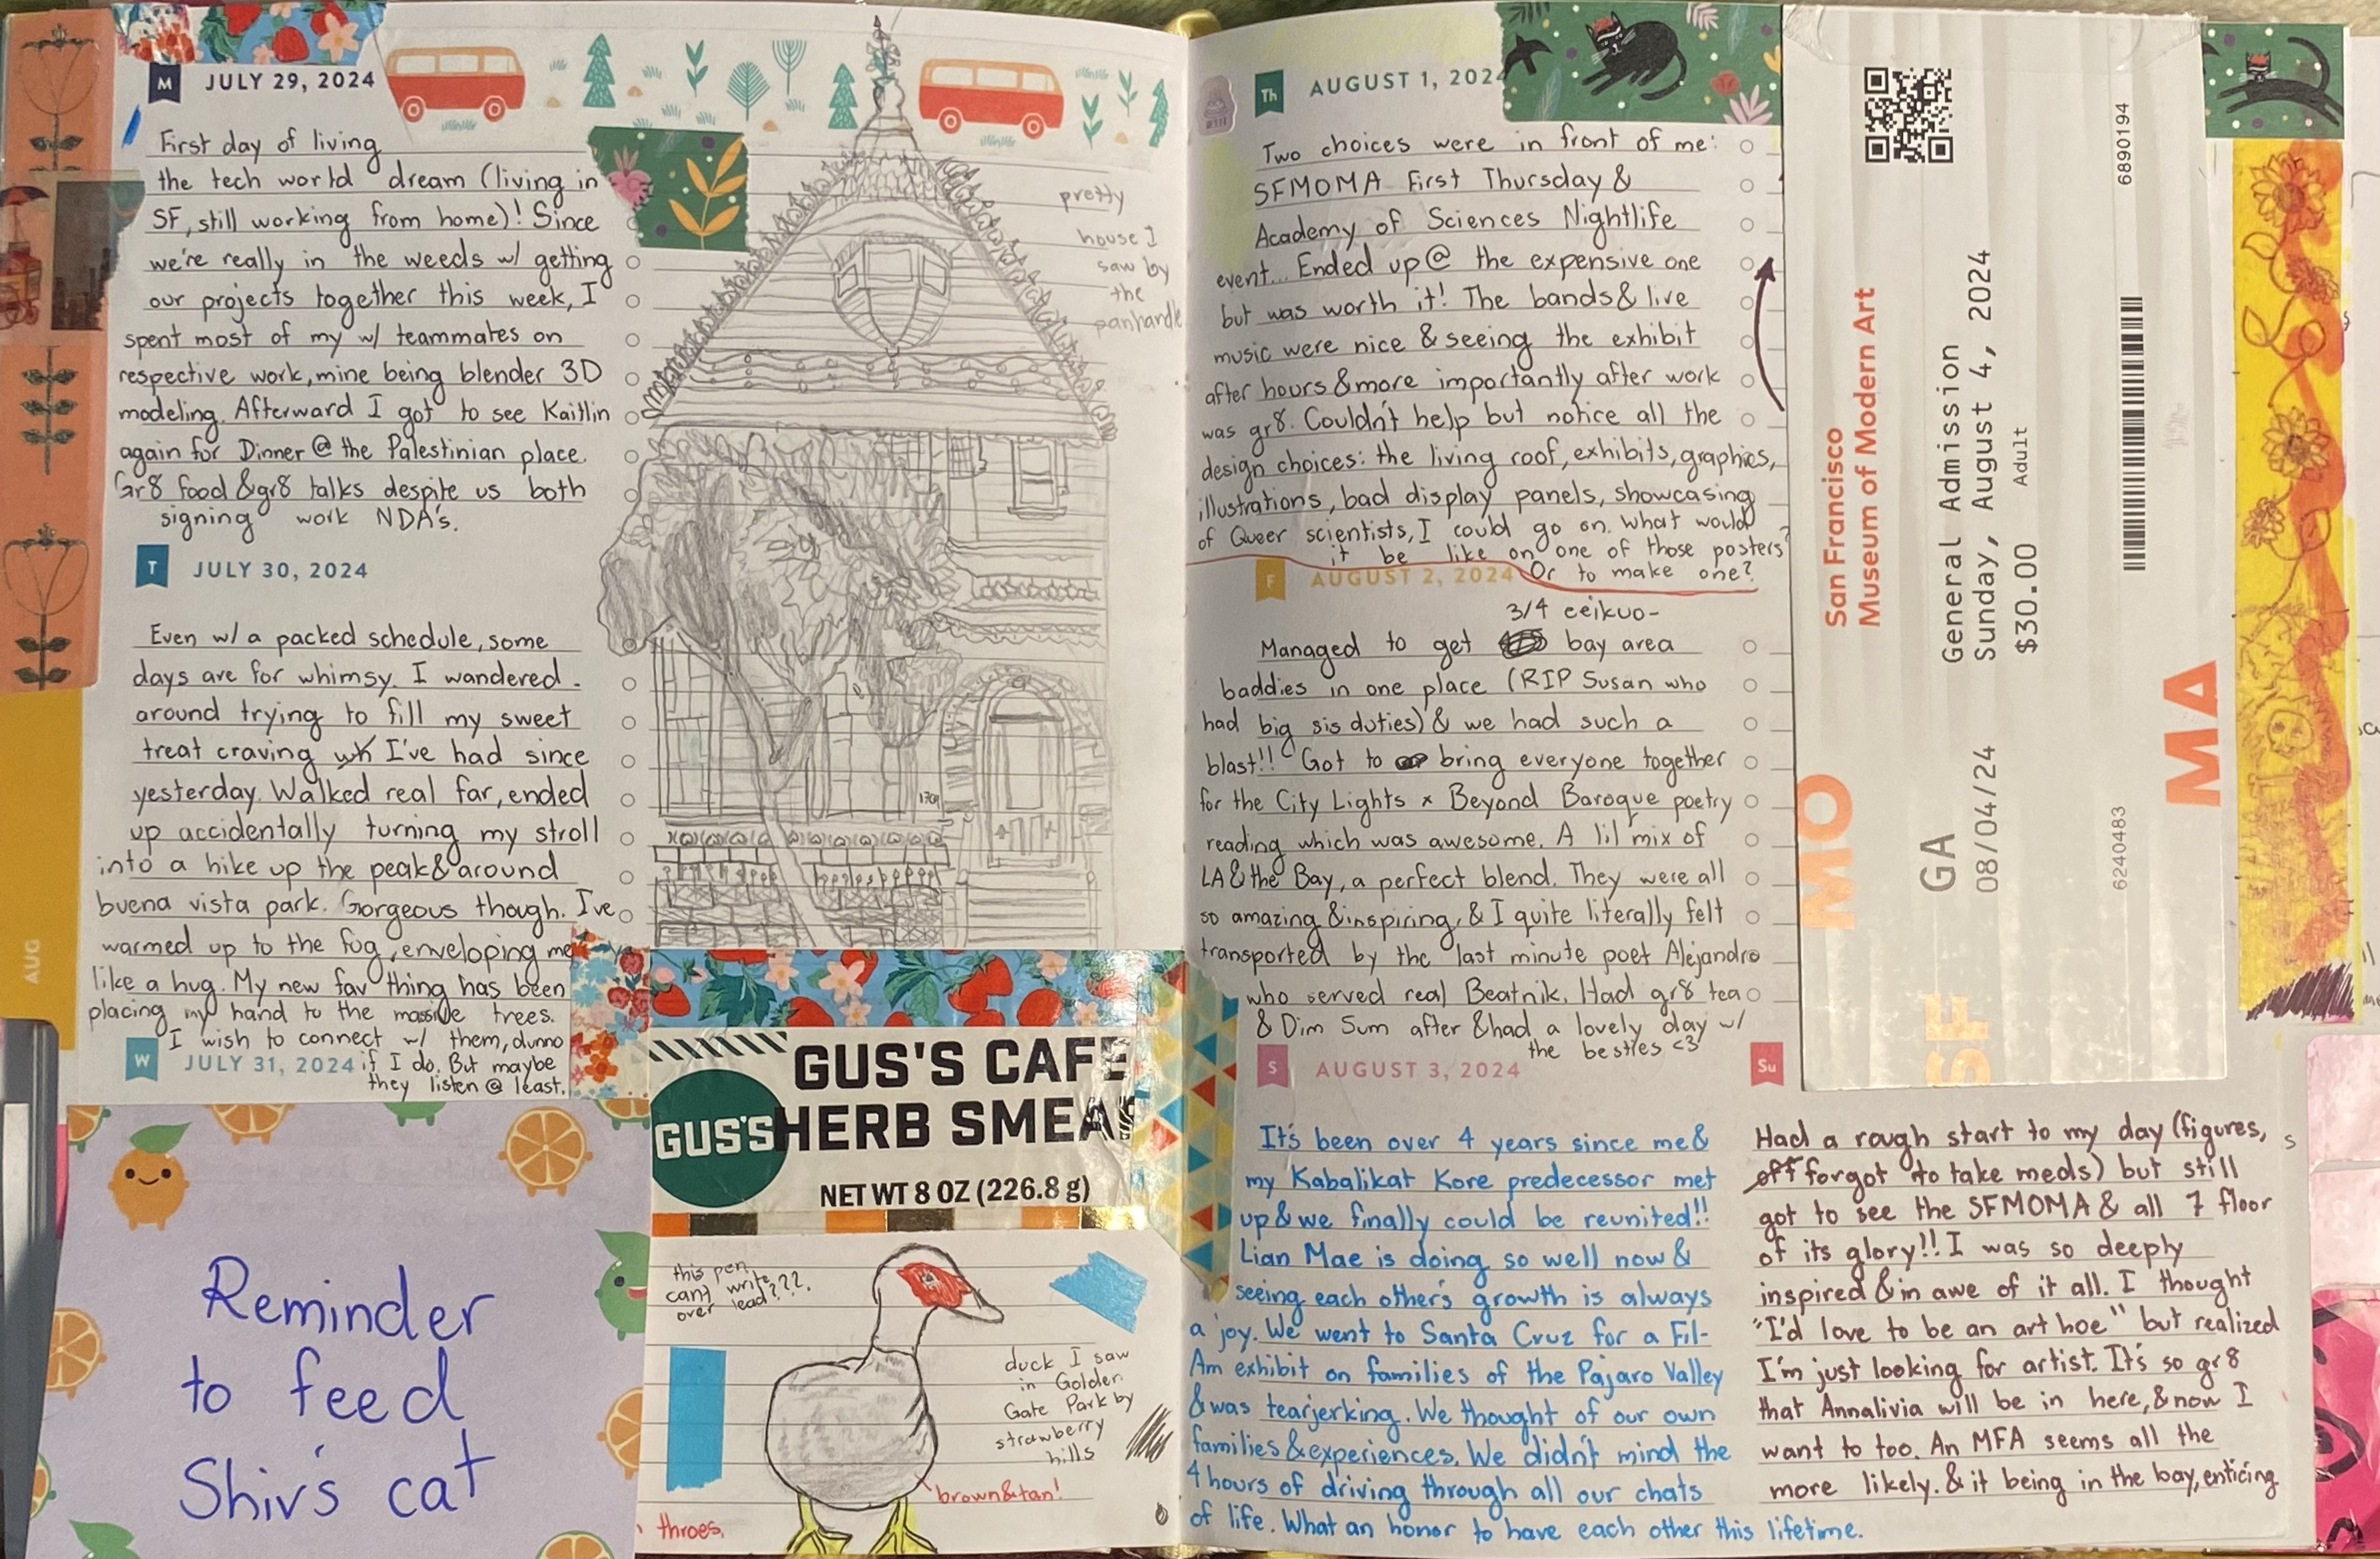 M JULY 29, 2024
First day of living
the tech world dream (living in
SF, still working from home)! Since
we're really in the weeds w/ getting
our projects together this week, I
spent most of my w/ teammates on
respective work, mine being blender 3D
modeling. Afterward I got to see Kaitlin
again for Dinner @ the Palestinian place.
Gr8 food & gr8 talks despite us both
signing work NDA's.
pretty
house I
saw by
the
panhandle
T JULY 30, 2024
Even w/ a packed schedule, some
days are for whimsy. I wandered
around trying to fill my sweet
treat craving wh I've had since
yesterday. Walked real far, ended
up accidentally turning my stroll
into a hike up the peak & around
buena vista park. Gorgeous though. I've
warmed up to the fog, enveloping me
like a hug. My new fav thing has been
placing my hand to the massive trees.
I wish to connect w/ them, dunno
if I do. But maybe
they listen @ least.
W JULY 31, 2024
AUG
Reminder
to feed
Shiv's cat
GUS'S CAFE
GUS'S HERB SMEA
NET WT 8 OZ (226.8 g)
this pen
can't write
over lead????
duck I saw
in Golden
Gate Park by
strawberry
hills
brown&tan!
throes.
Th AUGUST 1, 2024
Two choices were in front of me:
SFMOMA First Thursday &
Academy of Sciences Nightlife
event... Ended up @ the expensive one
but was worth it! The bands & live
music were nice & seeing the exhibit
after hours & more importantly after work
was gr8. Couldn't help but notice all the
design choices: the living roof, exhibits, graphics,
illustrations, bad display panels, showcasing
of Queer scientists, I could go on. What would
it be like on one of those posters?
Or to make one?
F AUGUST 2, 2024
3/4 ceikuo-
Managed to get bay area
baddies in one place (RIP Susan who
had big sis duties) & we had such a
blast!! Got to bring everyone together
for the City Lights x Beyond Baroque poetry
reading which was awesome. A lil mix of
LA & the Bay, a perfect blend. They were all
so amazing & inspiring, & I quite literally felt
transported by the last minute poet Alejandro
who served real Beatnik. Had gr8 tea
& Dim Sum after & had a lovely day w/
the besties <3
S AUGUST 3, 2024
It's been over 4 years since me &
my Kabalikat Kore predecessor met
up & we finally could be reunited!!
Lian Mae is doing so well now &
seeing each other's growth is always
a joy. We went to Santa Cruz for a Fil-
Am exhibit on families of the Pajaro Valley
& was tearjerking. We thought of our own
families & experiences. We didn't mind the
4 hours of driving through all our chats
of life. What an honor to have each other this lifetime.
Su
Had a rough start to my day (figures,
off forgot to take meds) but still
got to see the SFMOMA & all 7 floor
of its glory!! I was so deeply
inspired & in awe of it all. I thought
"I'd love to be an art hoe" but realized
I'm just looking for artist. It's so gr8
that Annalivia will be in here, & now I
want to too. An MFA seems all the
more likely. & it being in the bay, enticing
San Francisco
Museum of Modern Art
General Admission
Sunday, August 4, 2024
$30.00 Adult
GA
08/04/24
6890194
6240483
SF
MO
MA